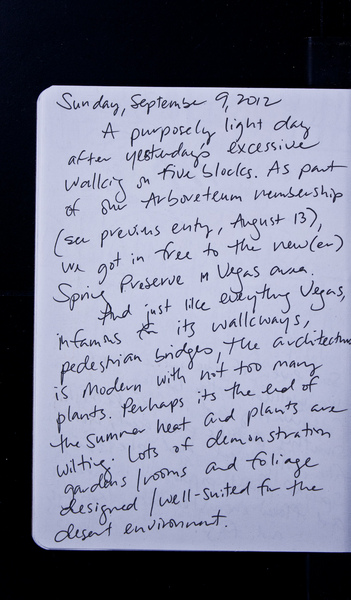 Sunday, September 9, 2012
A purposely light day
after yesterday's excessive
walking on five blocks. As part
of our Arboreteum membership
(see previous entry, August 13),
we got in free to the new(er)
Spring Preserve in Vegas area.
And just like everything Vegas,
infamous for its walkways,
pedestrian bridges, the architecture
is modern with not too many
plants. Perhaps its the end of
the summer heat and plants are
wilting. Lots of demonstration
gardens/rooms and foliage
designed/well-suited for the
desert environment.